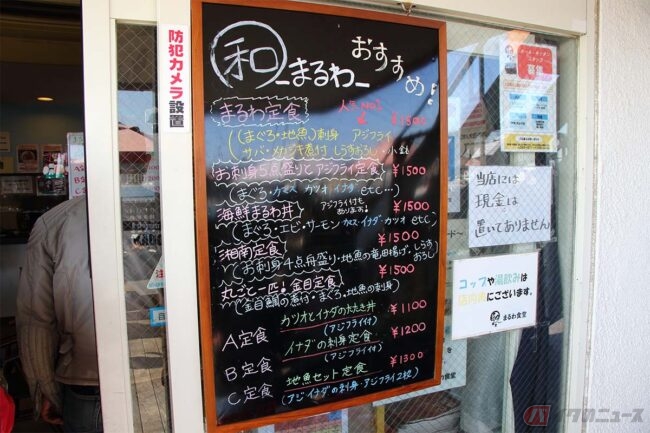 防犯カメラ設置
和 まるわ おすすめ!
まるわ定食 人気No.1 ¥1500
(まぐろ・地魚)刺身 アジフライ
サバ・メカジキ煮付 しらすおろし・小鉢
お刺身5点盛りとアジフライ定食 ¥1500
(まぐろ・カマス カツオ イナダ etc...)
海鮮まるわ丼 アジフライ付もあります! ¥1500
(まぐろ・エビ・サーモン カマス・イナダ・カツオ etc)
湘南定食 ¥1500
(お刺身4点舟盛り・地魚の竜田揚げ・しらすおろし)
丸ごと一匹!金目定食 ¥1500
(金目鯛の煮付・まぐろ・地魚の刺身)
A定食 カツオとイナダのたたき丼 ¥1100
(アジフライ付)
B定食 イナダの刺身定食 ¥1200
(アジフライ付)
C定食 地魚セット定食 ¥1300
(アジ イナダの刺身・アジフライ2枚)
募集
当店には
現金は
置いてありません
コップや湯飲みは
店内奥にございます。
まるわ食堂
バイクのニュース